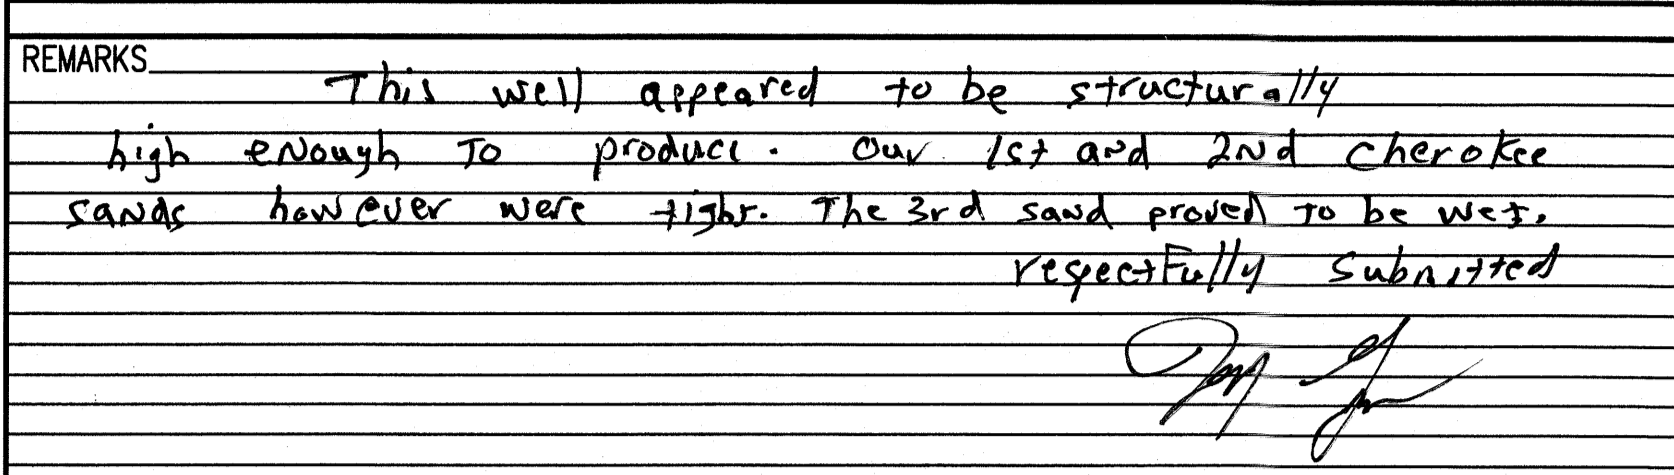 REMARKS
This well appeared to be structurally
high enough To produce. Our 1st and 2nd cherokee
sands however were tight. The 3rd sand proved to be wet.
respectfully submitted